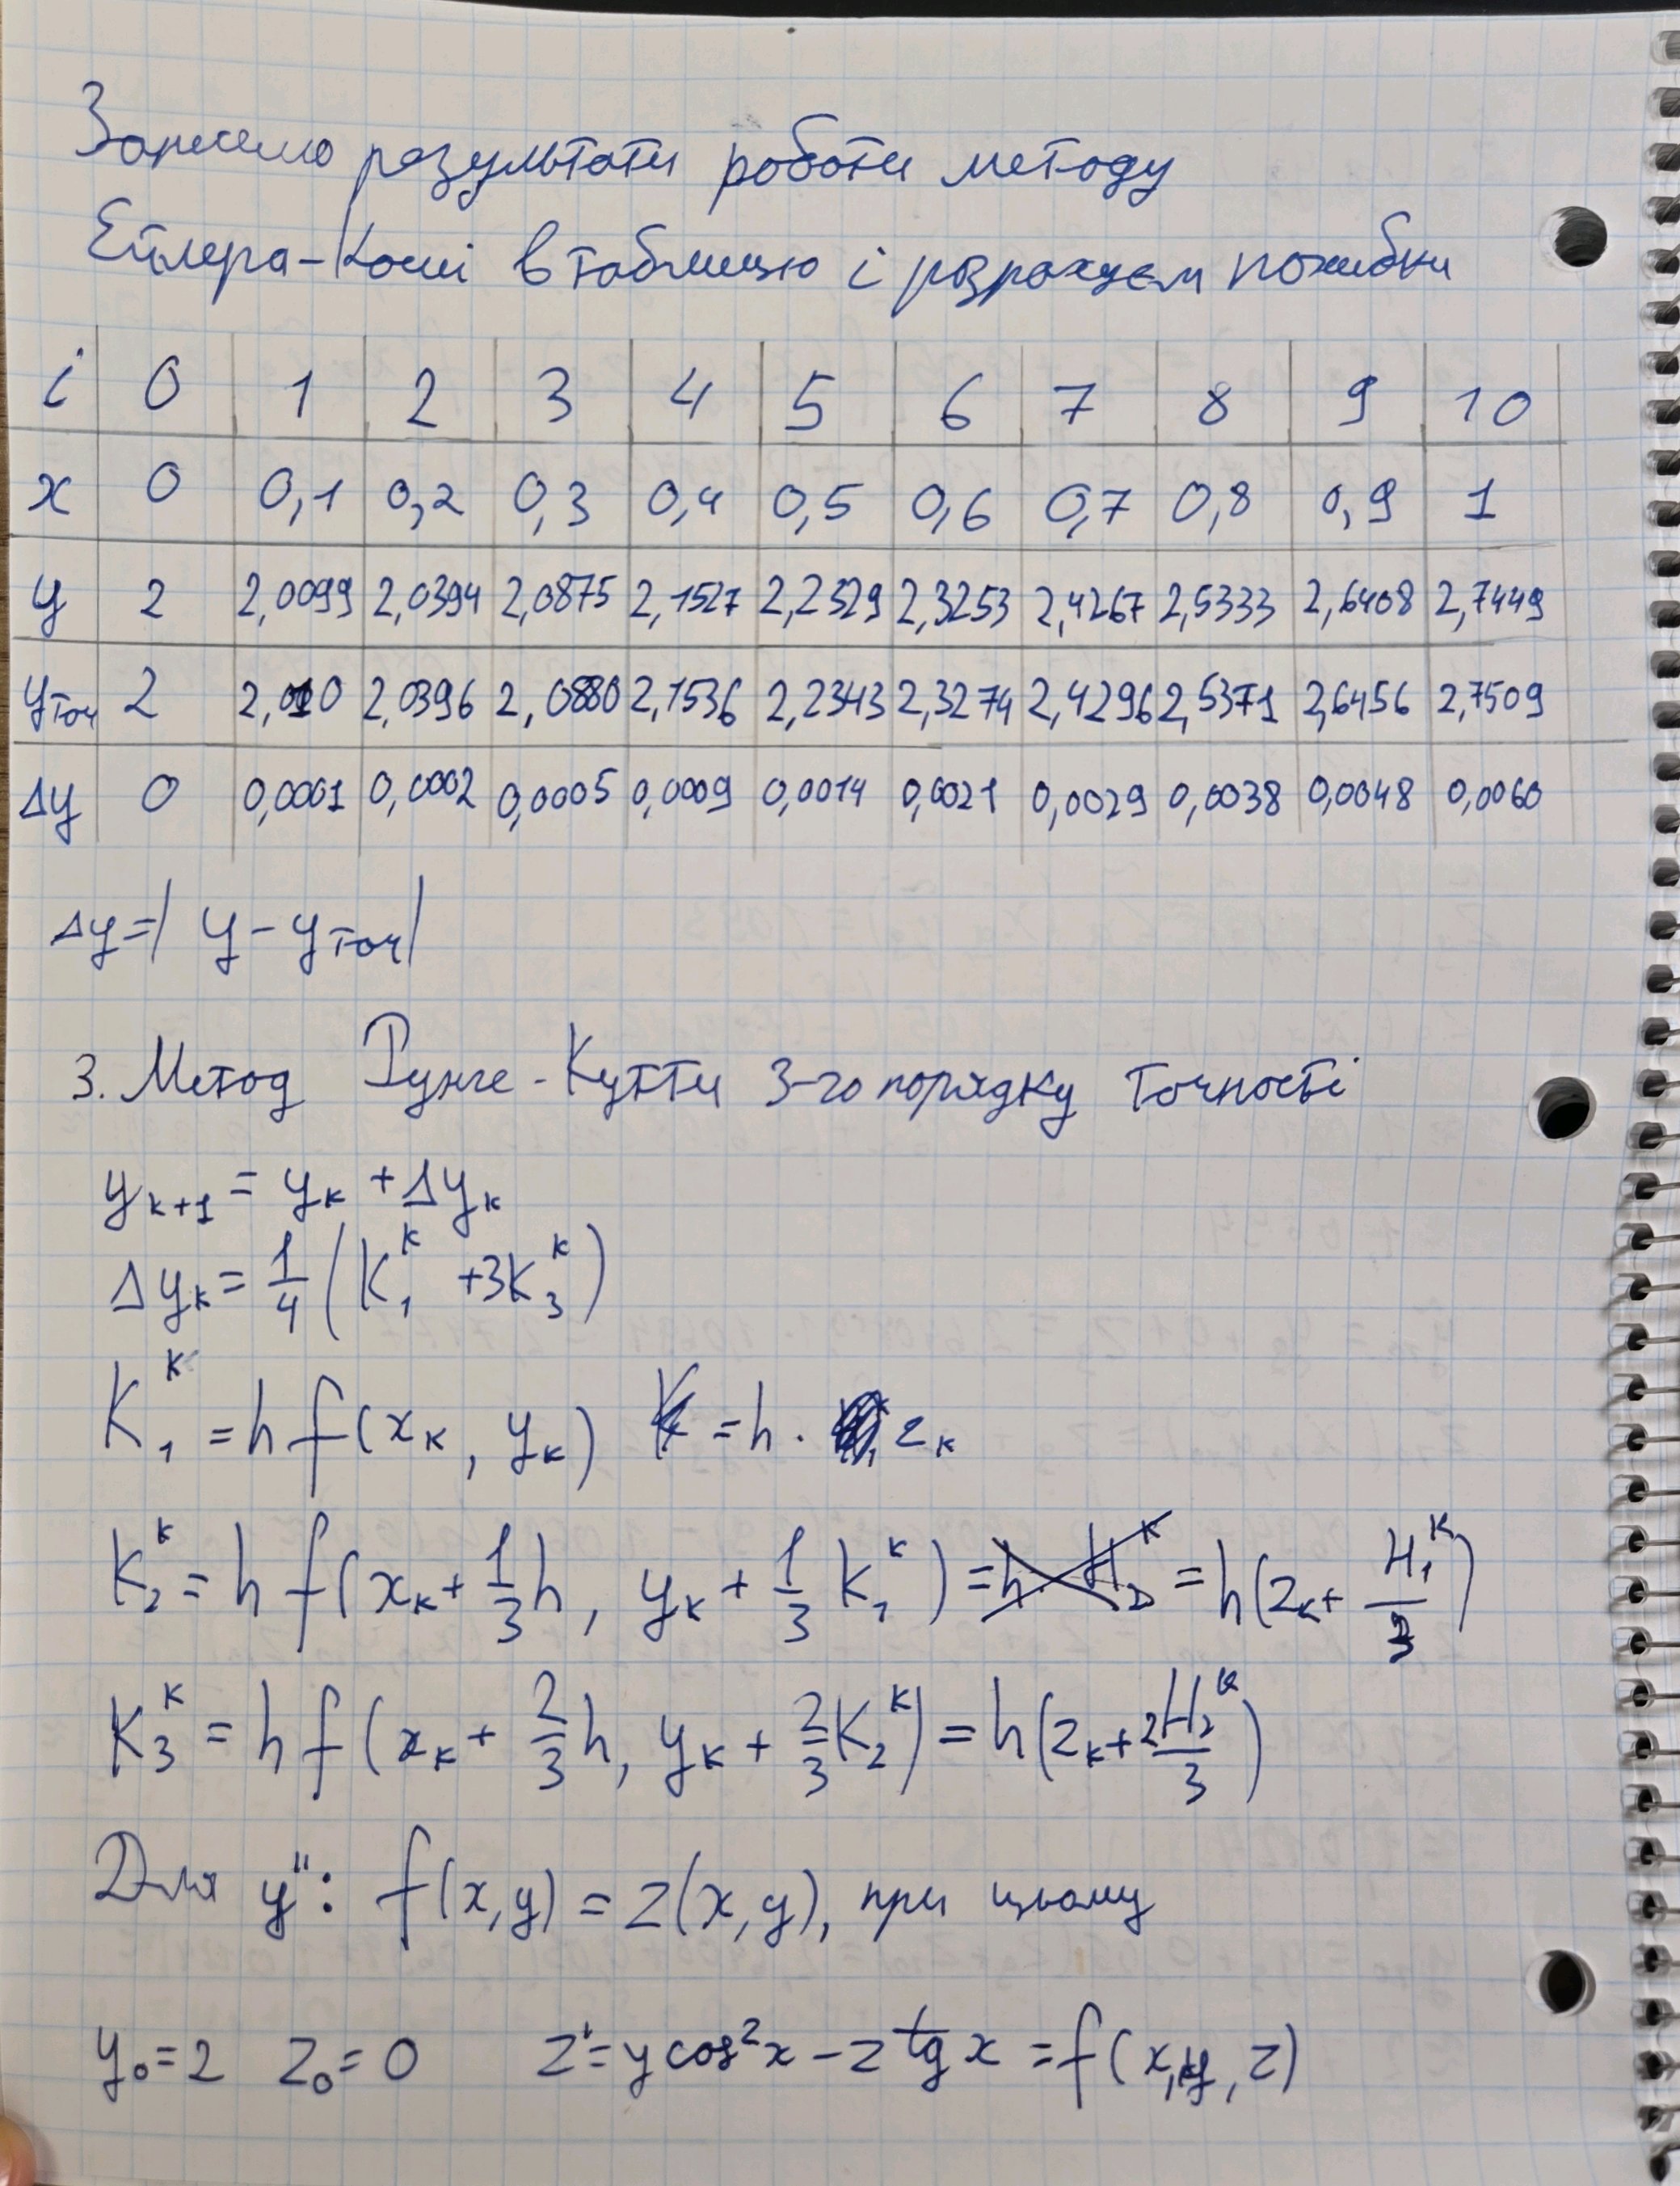 Занесемо результати роботи методу
Ейлера-Коші в таблицю і розрахуєм похибки
i 0 1 2 3 4 5 6 7 8 9 10
x 0 0,1 0,2 0,3 0,4 0,5 0,6 0,7 0,8 0,9 1
y 2 2,0099 2,0394 2,0875 2,1527 2,2329 2,3253 2,4267 2,5333 2,6408 2,7449
yточ 2 2,010 2,0396 2,0880 2,1536 2,2343 2,3274 2,4296 2,5371 2,6456 2,7509
Δy 0 0,0001 0,0002 0,0005 0,0009 0,0014 0,0021 0,0029 0,0038 0,0048 0,0060
Δy=|y-yточ|
3. Метод Рунге-Кутти 3-го порядку точності
y_{k+1} = y_k + Δy_k
Δy_k = 1/4 (K_1^k + 3K_3^k)
K_1^k = h f(x_k, y_k) = h · z_k
K_2^k = h f(x_k + 1/3 h, y_k + 1/3 K_1^k) = h(z_k + H_1^k/3)
K_3^k = h f(x_k + 2/3 h, y_k + 2/3 K_2^k) = h(z_k + 2H_2^k/3)
Для y'': f(x,y) = z(x,y), при цьому
y_0 = 2 z_0 = 0 z' = y cos²x - z tg x = f(x,y,z)